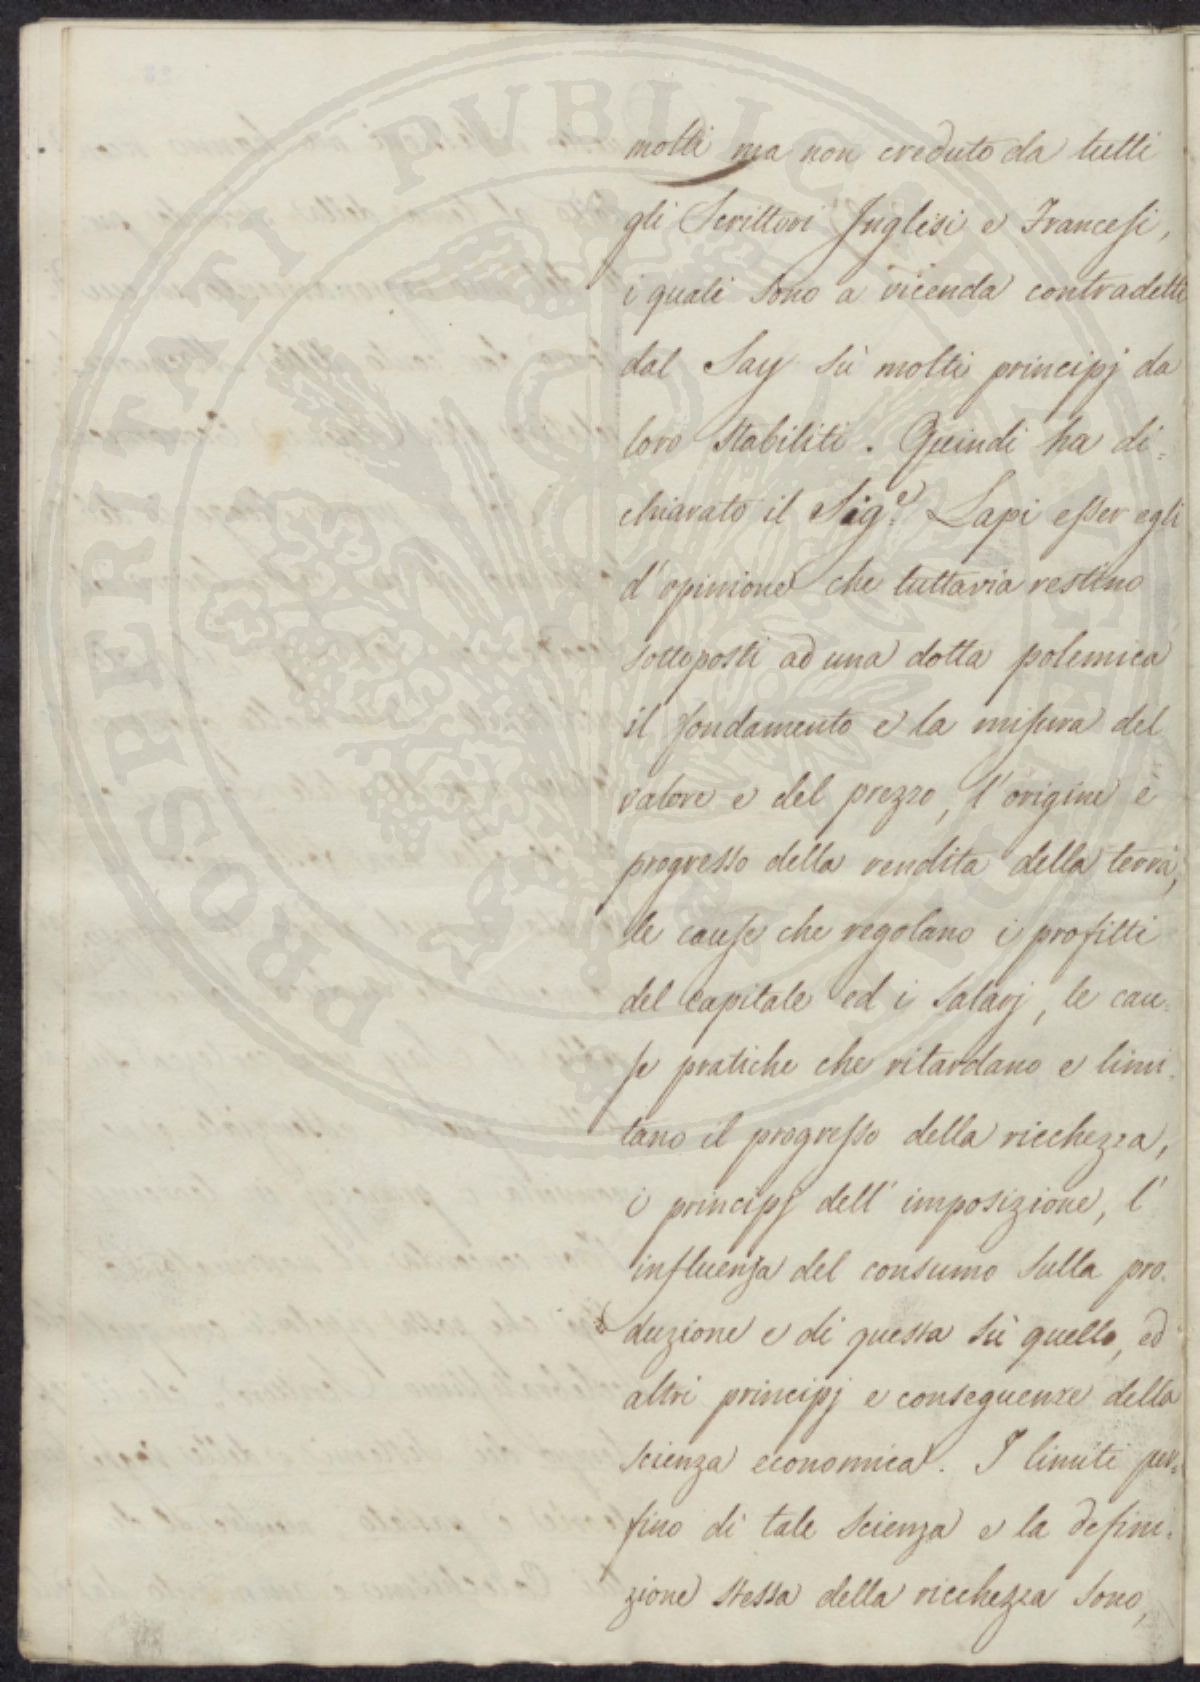 molti ma non creduto da tutti
gli Scrittori Inglesi e Francesi,
i quali sono a vicenda contradetti
dal Say sù molti principj da
loro stabiliti. Quindi ha di=
chiarato il Sig.e Lapi esser egli
d'opinione che tuttavia restino
sottoposti ad una dotta polemica
il fondamento e la misura del
valore e del prezzo, l'origine e
progresso della rendita della terra,
le cause che regolano i profitti
del capitale ed i salarj, le cau=
se pratiche che ritardano e limi=
tano il progresso della ricchezza,
i principj dell' imposizione, l'
influenza del consumo sulla pro=
duzione e di questa sù quello, ed
altri principj e conseguenze della
scienza economica. I limiti per=
fino di tale scienza e la defini=
zione stessa della ricchezza sono,
PROSPERITATI PUBLICAE